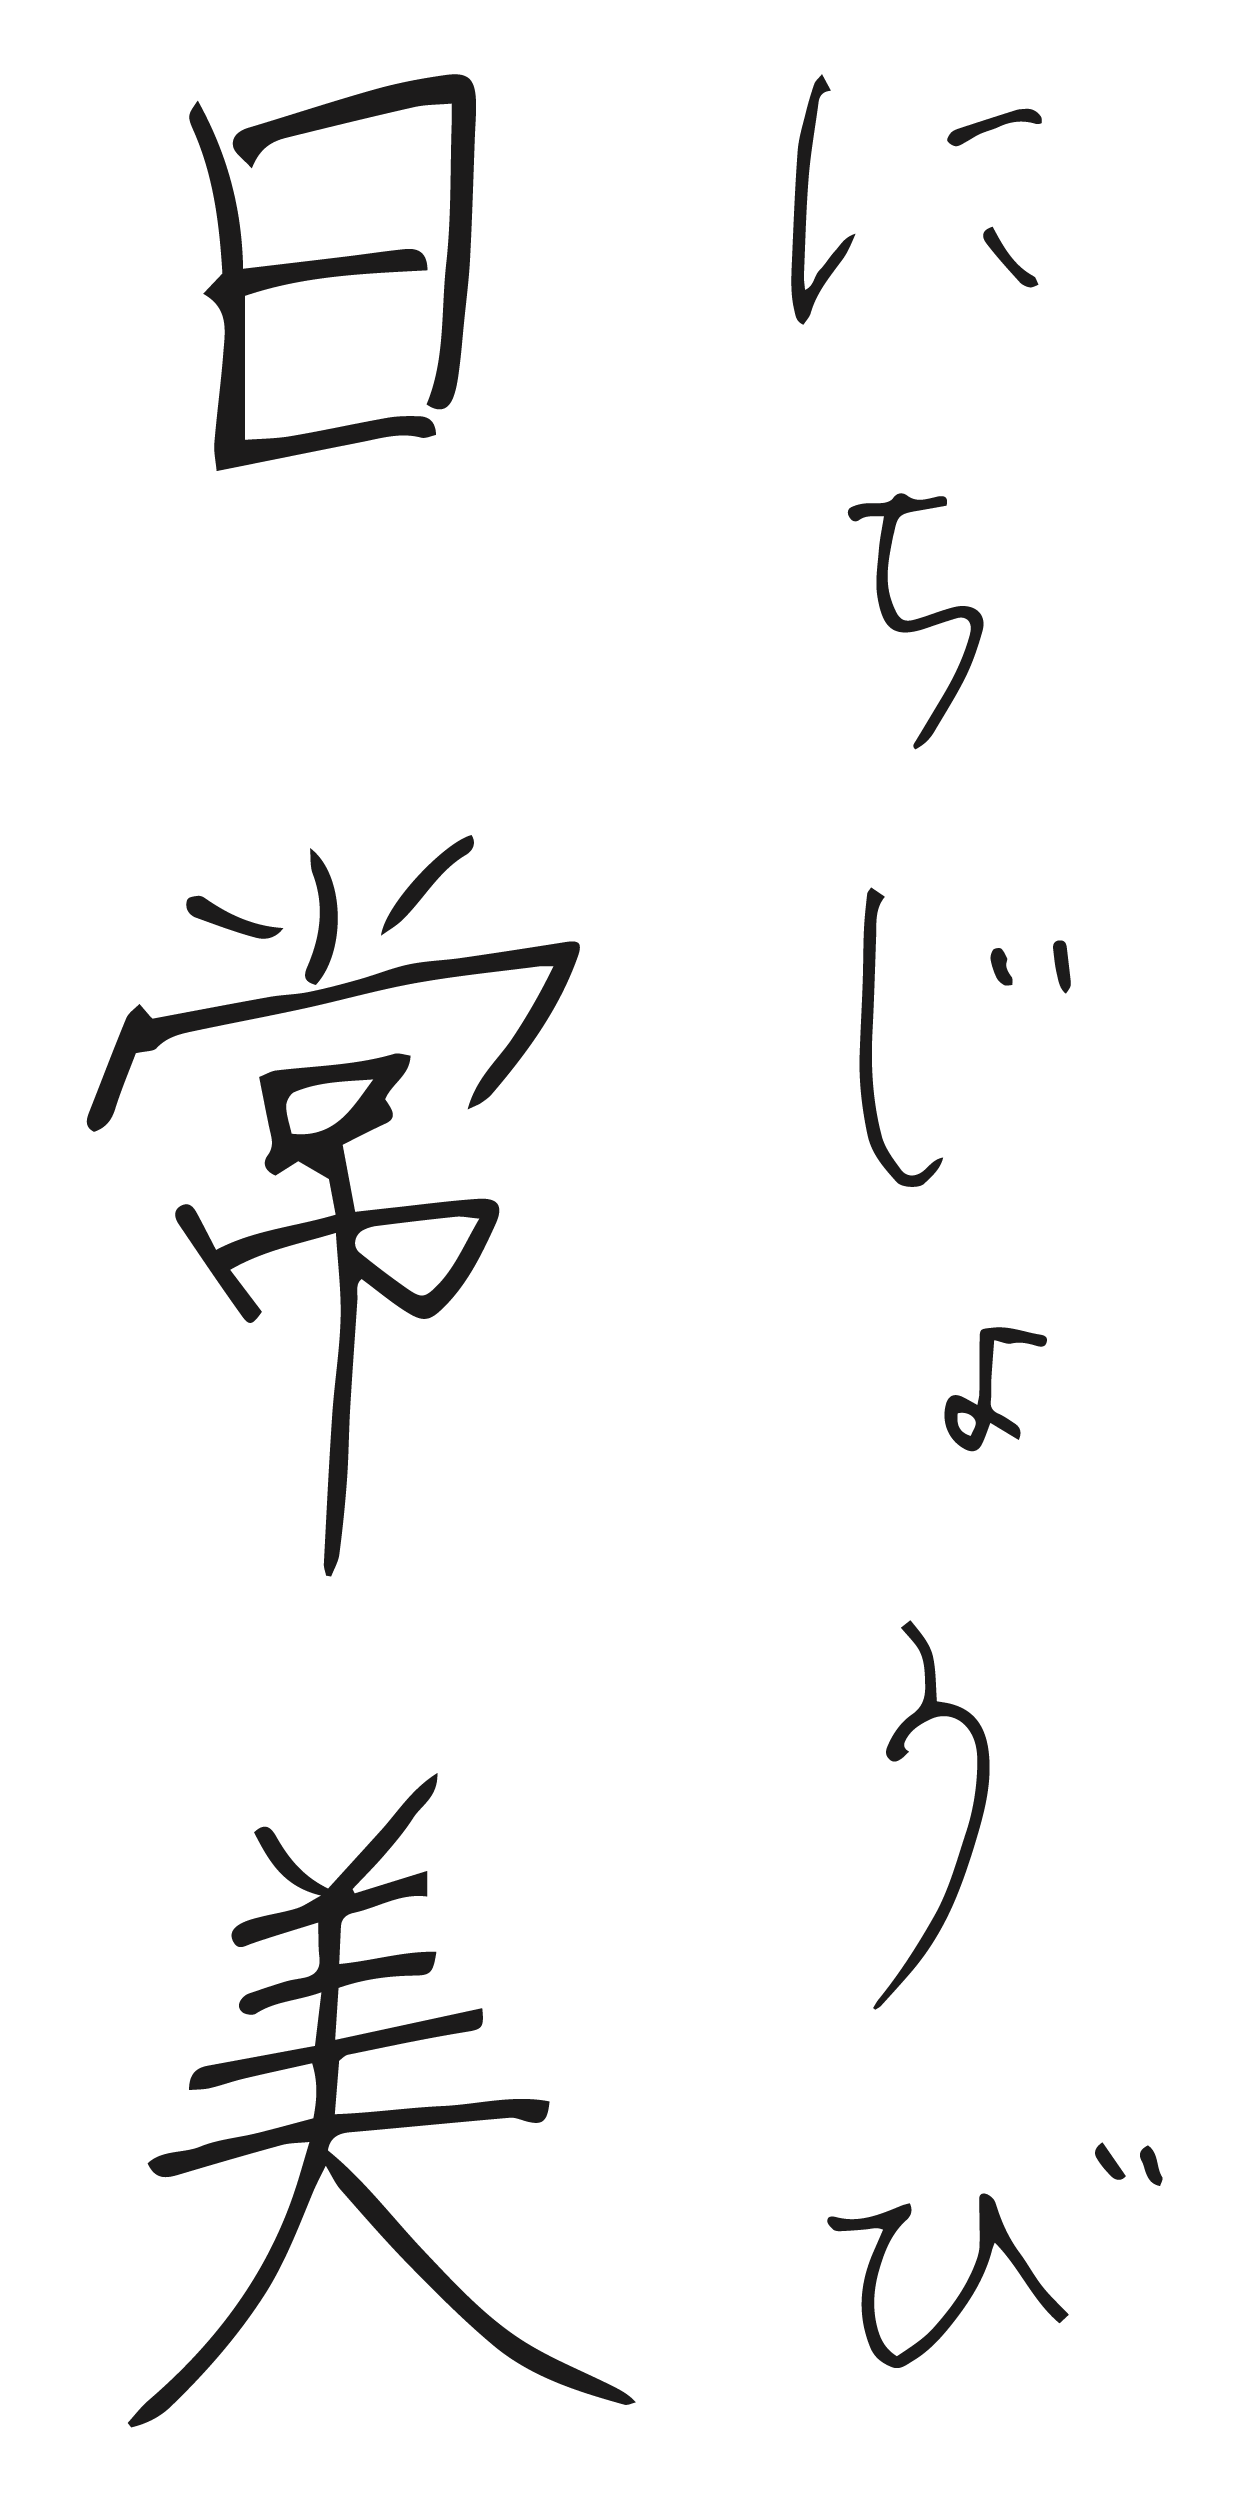 にちじょうび
日常美